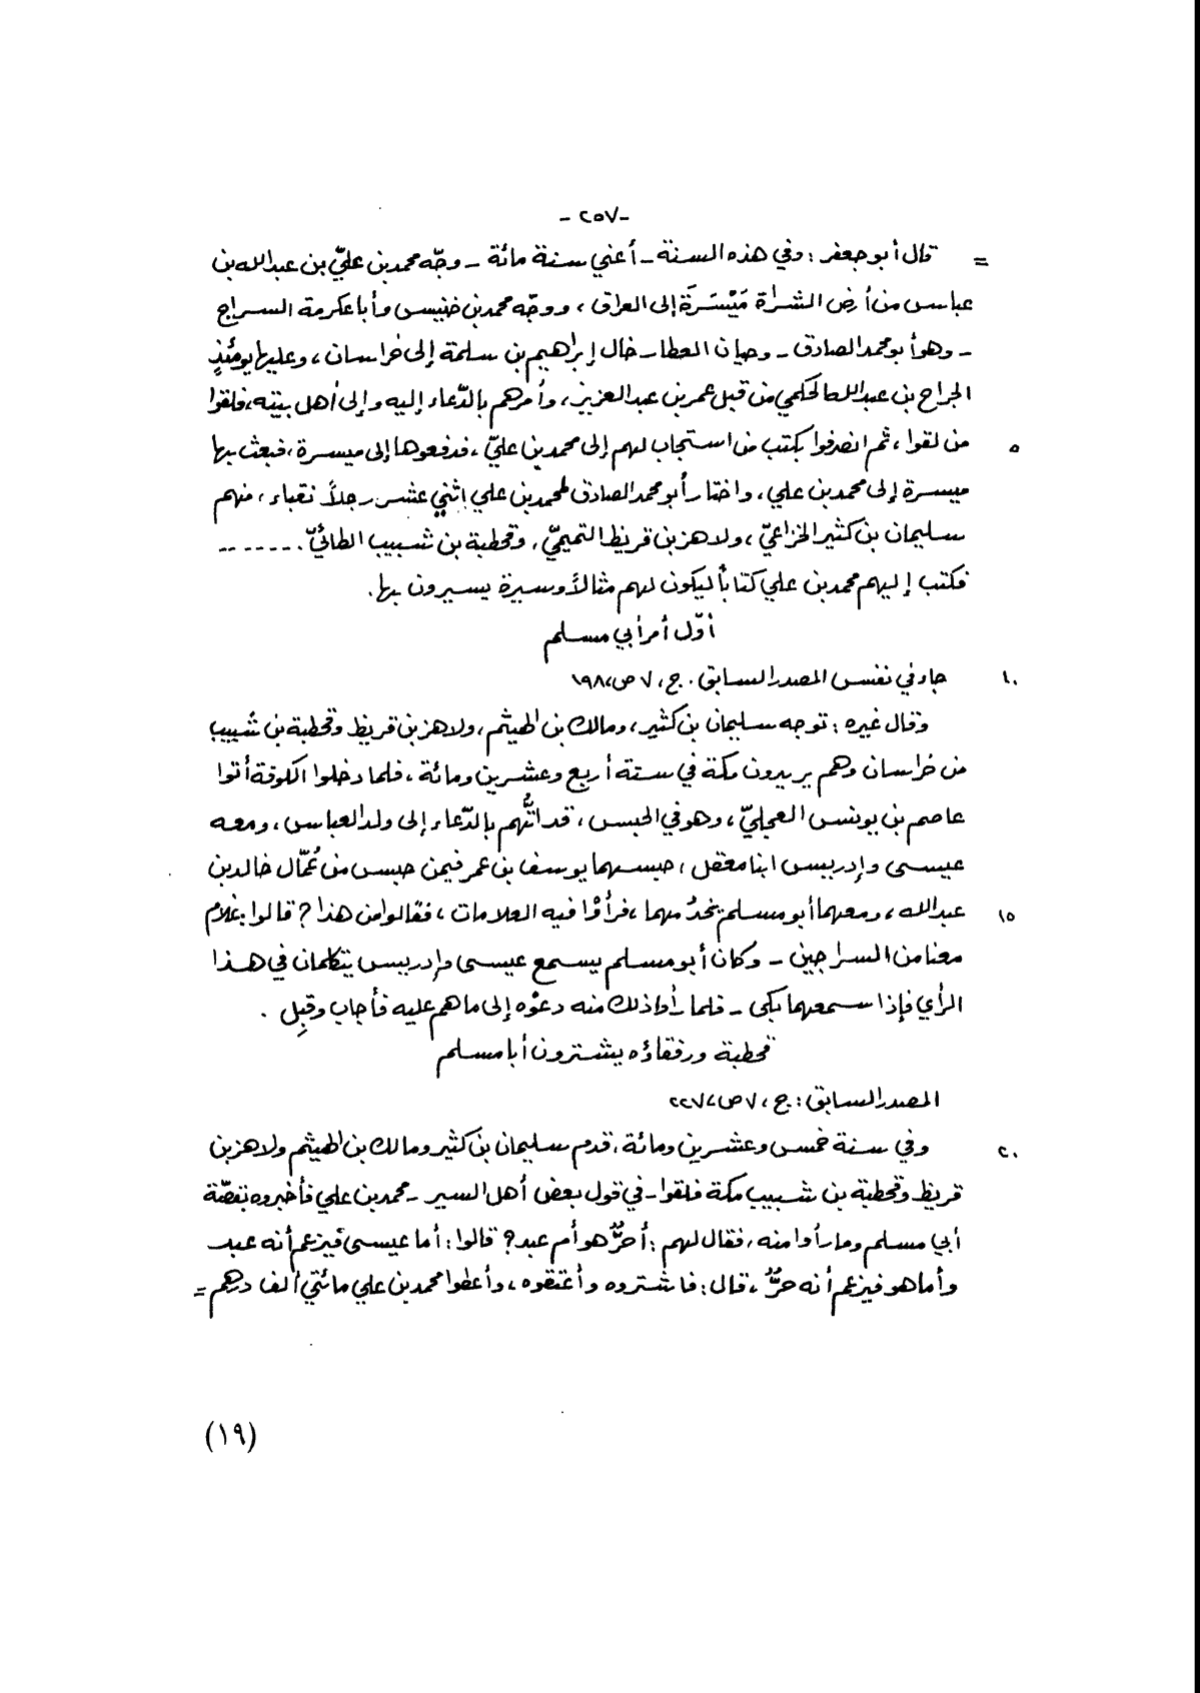 -٢٥٧-
= قال أبو جعفر : وفي هذه السنة - أعني سنة مائة - وجّه محمد بن عليّ بن عبد الله بن
عباس من أرض الشراة مَيْسَرَة إلى العراق ، ووجّه محمد بن خنيس وأبا عكرمة السراج
- وهو أبو محمد الصادق - وحيان العطار خال إبراهيم بن سلمة إلى خراسان ، وعليها يومئذٍ
الجراح بن عبد الله الحكمي من قبل عمر بن عبد العزيز ، وأمرهم بالدّعاء إليه وإلى أهل بيته ، فلقوا
٥ من لقوا ، ثم انصرفوا بكتب من استجاب لهم إلى محمد بن عليّ ، فدفعوها إلى ميسرة ، فبعث بها
ميسرة إلى محمد بن علي ، واختار أبو محمد الصادق لمحمد بن علي اثني عشر رجلاً نقباء ، منهم
سليمان بن كثير الخزاعيّ ، ولاهز بن قريظ التميميّ ، وقحطبة بن شبيب الطائيّ . - - - - - -
فكتب إليهم محمد بن علي كتاباً ليكون لهم مثالاً وسيرة يسيرون بها .
أوّل أمر أبي مسلم
١٠ جاء في نفس المصدر السابق . ج ، ٧ ص ، ١٩٨
وقال غيره : توجه سليمان بن كثير ، ومالك بن الهيثم ، ولاهز بن قريظ وقحطبة بن شبيب
من خراسان وهم يريدون مكة في سنة أربع وعشرين ومائة ، فلما دخلوا الكوفة أتوا
عاصم بن يونس العجليّ ، وهو في الحبس ، قد اتُّهم بالدّعاء إلى ولد العباس ، ومعه
عيسى وإدريس ابنا معقل ، حبسهما يوسف بن عمر فيمن حبس من عُمّال خالد بن
١٥ عبد الله ، ومعهما أبو مسلم يخدُمهما ، فرأوْا فيه العلامات ، فقالوا من هذا ؟ قالوا : غلام
معنا من السراجين - وكان أبو مسلم يسمع عيسى وإدريس يتكلمان في هذا
الرأي فإذا سمعهما بكى - فلما رأوا ذلك منه دعوْه إلى ما هم عليه فأجاب وقبِل .
قحطبة ورفقاؤه يشترون أبا مسلم
المصدر السابق : ج ، ٧ ص ، ٢٢٧
٢٠ وفي سنة خمس وعشرين ومائة ، قدم سليمان بن كثير ومالك بن الهيثم ولاهز بن
قريظ وقحطبة بن شبيب مكة فلقوا - في قول بعض أهل السير - محمد بن علي فأخبروه بقصّة
أبي مسلم وما رأوا منه ، فقال لهم : أحرٌّ هو أم عبد ؟ قالوا : أما عيسى فيزعم أنه عبد
وأما هو فيزعم أنه حرٌّ ، قال : فاشتروه وأعتقوه ، وأعطوا محمد بن علي مائتي ألف درهم =
(١٩)